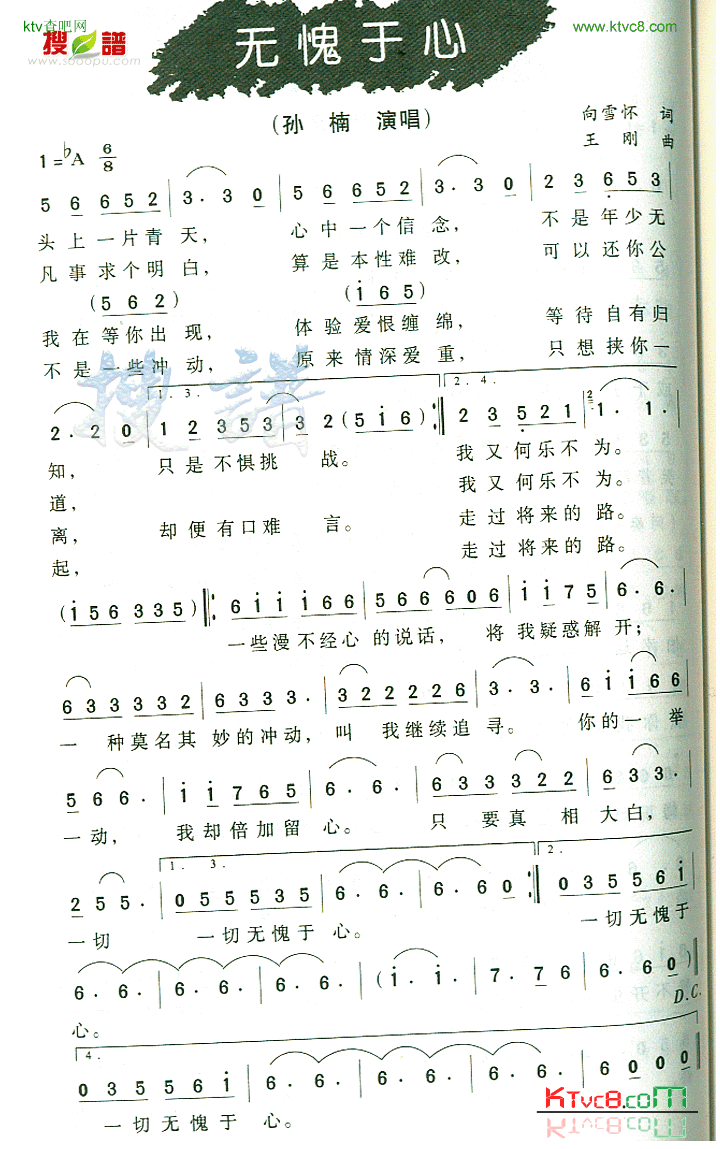 ktv查吧网
www.ktvc8.com
搜譜
www.sooopu.com
无愧于心
(孙楠 演唱)
向雪怀 词
王刚 曲
1=♭A 6/8
5 6 6 5 2 | 3. 3 0 | 5 6 6 5 2 | 3. 3 0 | 2 3 6 5 3
头上一片青天, 心中一个信念, 不是年少无
凡事求个明白, 算是本性难改, 可以还你公
(5 6 2) (i 6 5)
我在等你出现, 体验爱恨缠绵, 等待自有归
不是一些冲动, 原来情深爱重, 只想挟你一
搜譜
1. 3. 2. 4.
2. 2 0 | 1 2 3 5 3 | 3 2 (5 i 6) :| 2 3 5 2 1 | 1. 1.
知, 只是不惧挑战。 我又何乐不为。
道, 我又何乐不为。
离, 却便有口难言。 走过将来的路。
起, 走过将来的路。
(i 5 6 3 3 5) |: 6 i i i 6 6 | 5 6 6 6 0 6 | i i 7 5 | 6. 6.
一些漫不经心的说话, 将我疑惑解开;
6 3 3 3 3 2 | 6 3 3 3. | 3 2 2 2 2 6 | 3. 3. | 6 i i 6 6
一种莫名其妙的冲动, 叫我继续追寻。 你的一举
5 6 6. | i i 7 6 5 | 6. 6. | 6 3 3 3 2 2 | 6 3 3.
一动, 我却倍加留心。 只要真相大白,
1. 3. 2.
2 5 5. | 0 5 5 5 3 5 | 6. 6. | 6. 6 0 :| 0 3 5 5 6 i
一切 一切无愧于心。 一切无愧于
6. 6. | 6. 6. | 6. 6. | (i. i. | 7. 7 6 | 6. 6 0)
D.C.
心。
4.
0 3 5 5 6 i | 6. 6. | 6. 6. | 6. 6. | 6 0 0 0
一切无愧于心。
KTvc8.com